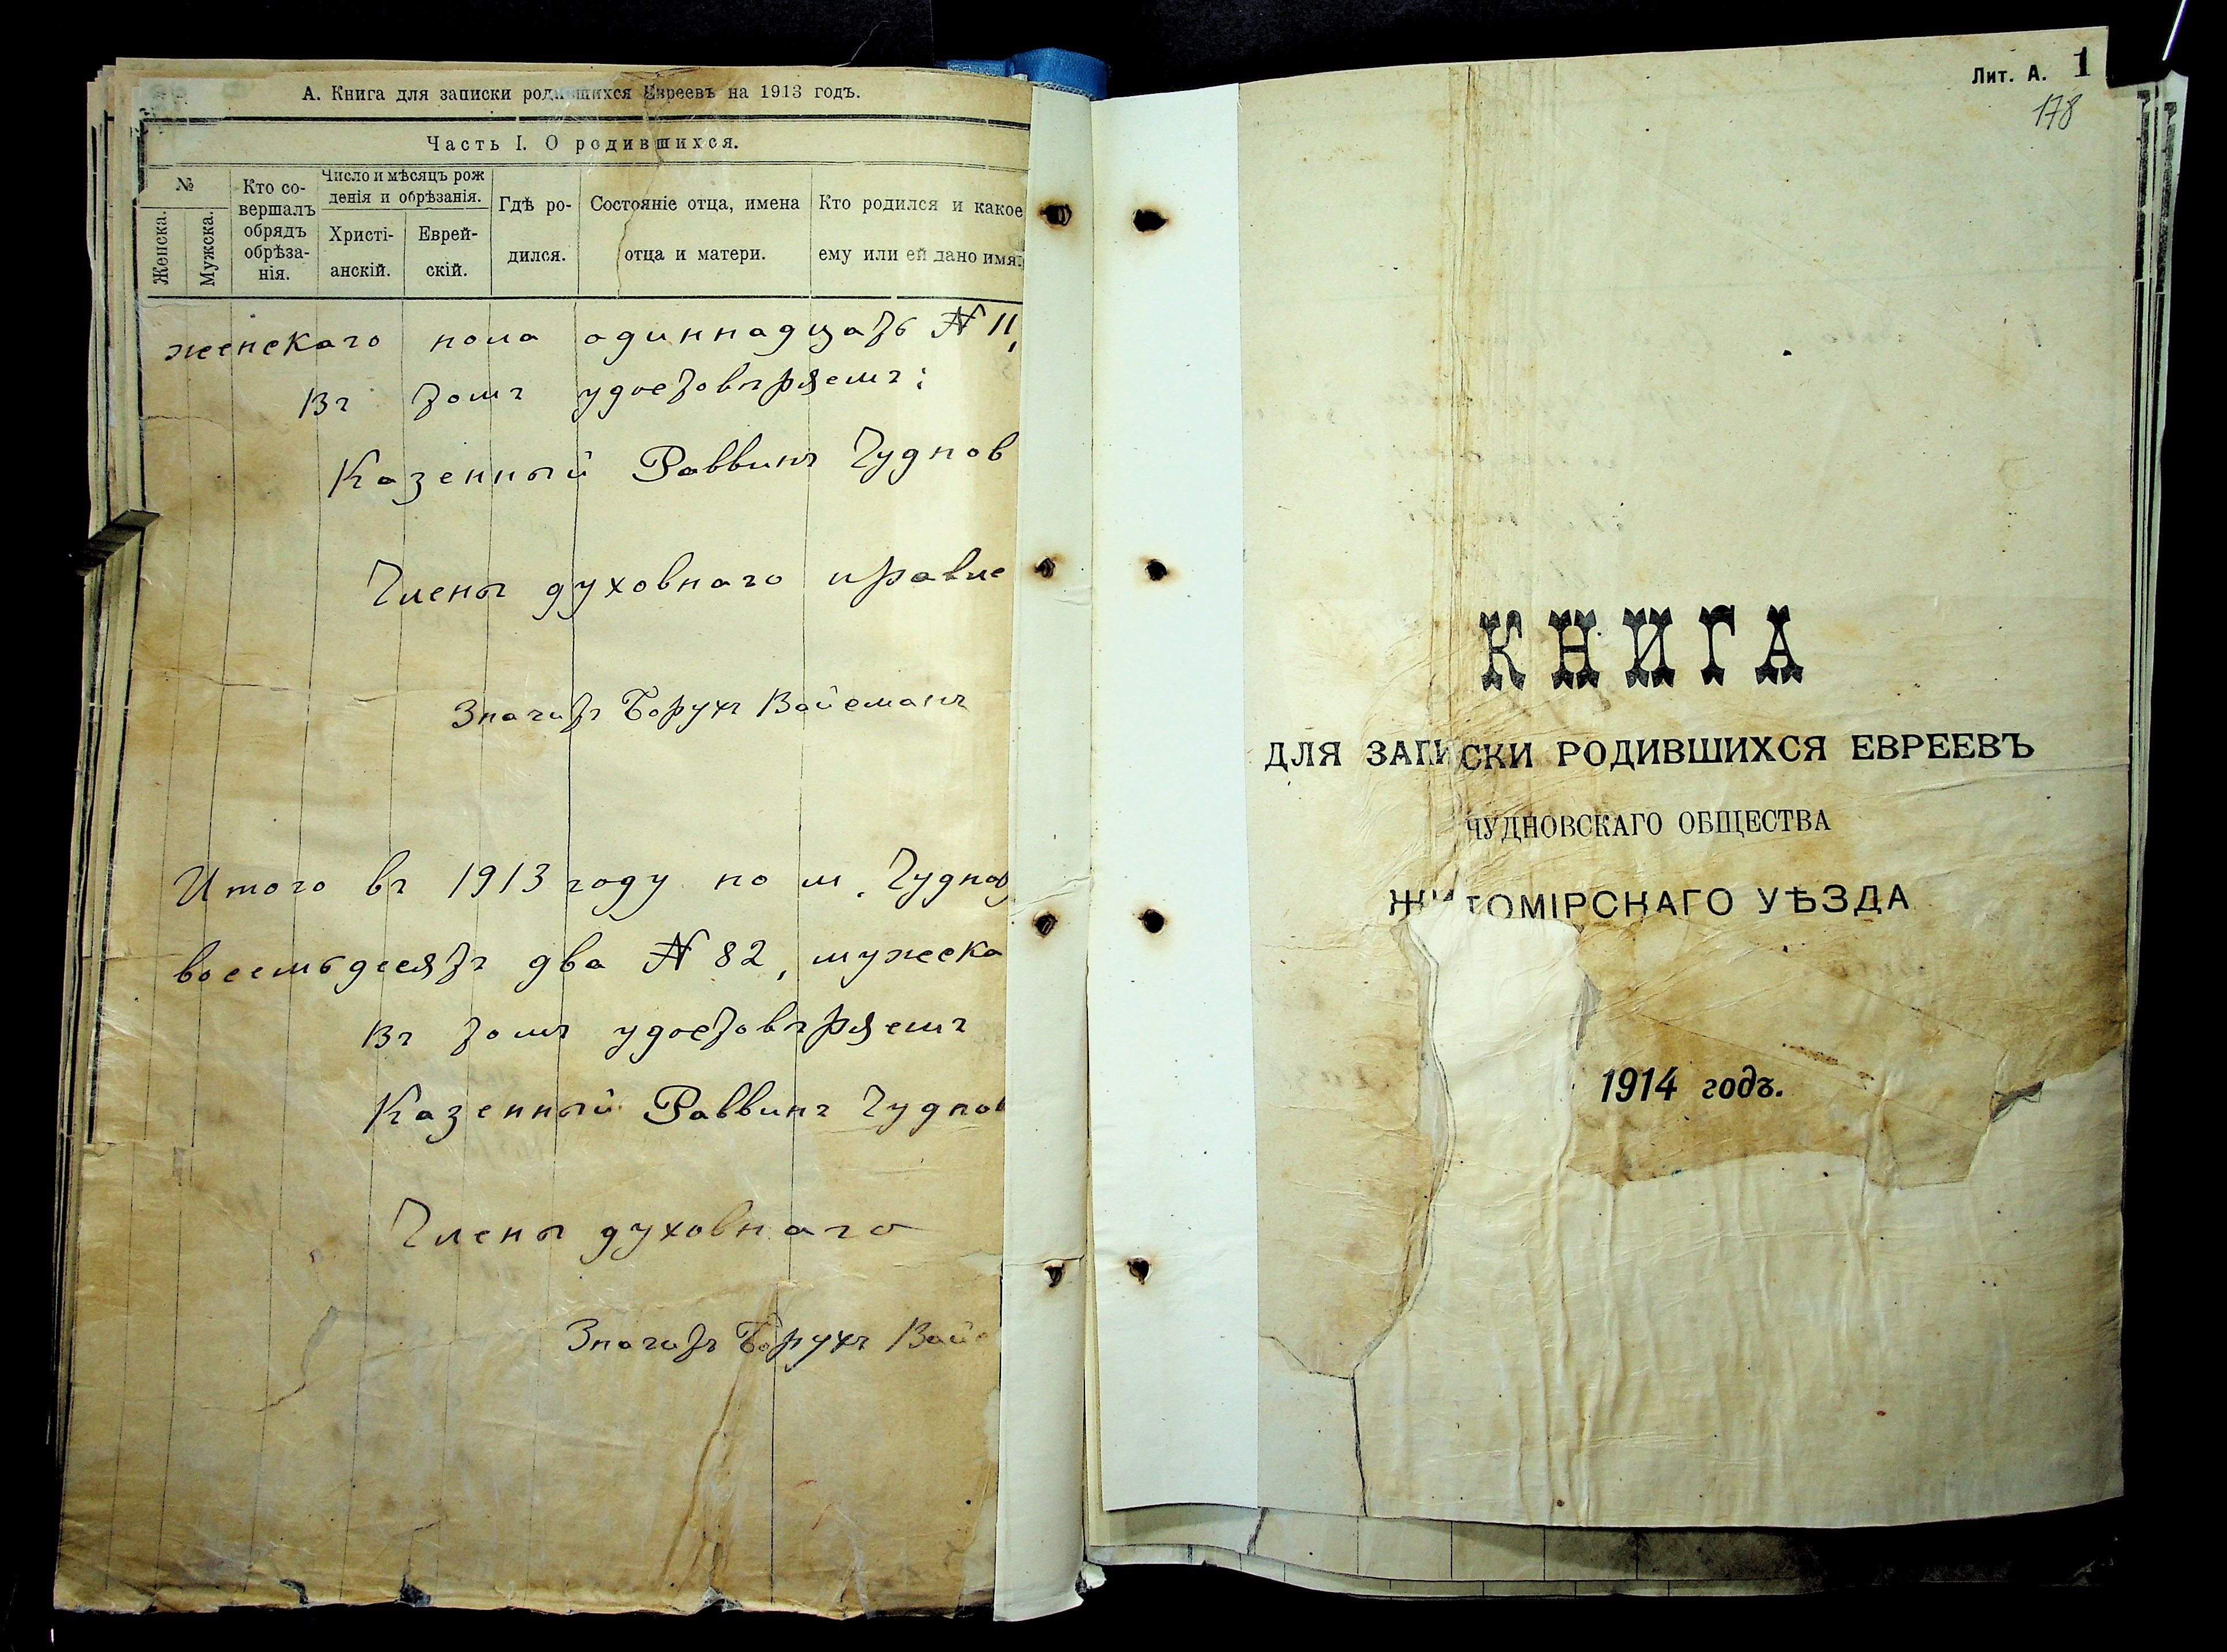 А. Книга для записки родившихся Евреевъ на 1913 годъ.
Часть I. О родившихся.
№
Женска.
Мужска.
Кто со-
вершалъ
обрядъ
обрѣза-
нія.
Число и мѣсяцъ рож
денія и обрѣзанія.
Христі-
анскій.
Еврей-
скій.
Гдѣ ро-
дился.
Состояніе отца, имена
отца и матери.
Кто родился и какое
ему или ей дано имя.
женскаго пола одиннадцать № 11,
Въ томъ удостовѣряемъ:
Казенный Раввинъ Чуднов
Члены духовнаго правле
Значитъ Борухъ Вайсманъ
Итого въ 1913 году по м. Чуднов
восемьдесятъ два № 82, мужска
Въ томъ удостовѣряемъ
Казенный Раввинъ Чуднов
Члены духовнаго
Значитъ Борухъ Вайс
Лит. А. 1
178
КНИГА
ДЛЯ ЗАПИСКИ РОДИВШИХСЯ ЕВРЕЕВЪ
ЧУДНОВСКАГО ОБЩЕСТВА
ЖИТОМІРСКАГО УѢЗДА
1914 годъ.